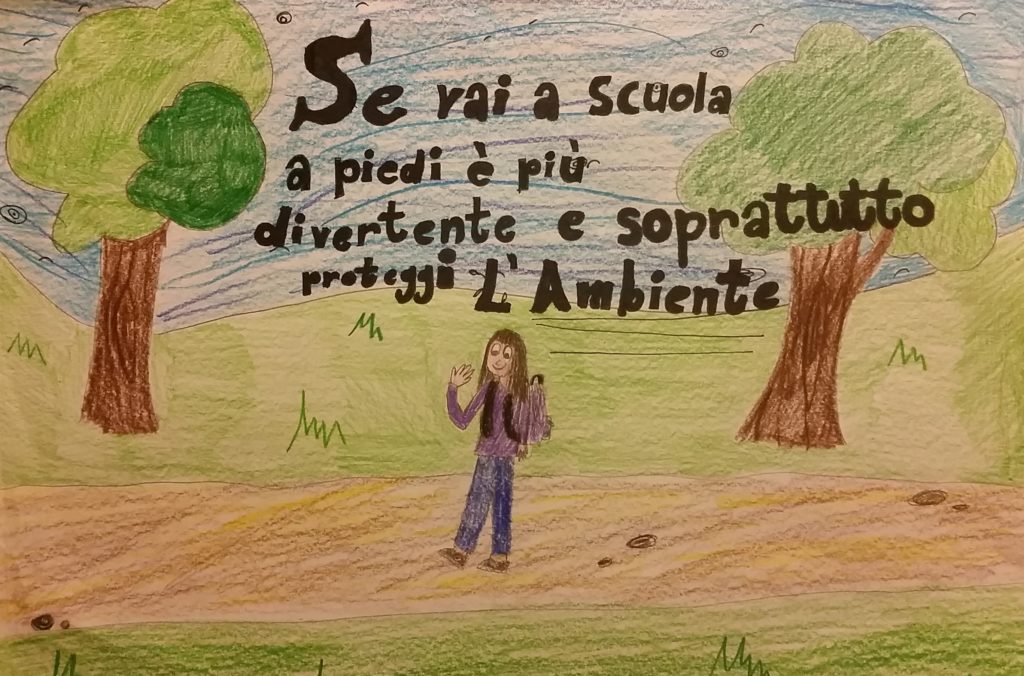 Se vai a scuola
a piedi è più
divertente e soprattutto
proteggi L'Ambiente